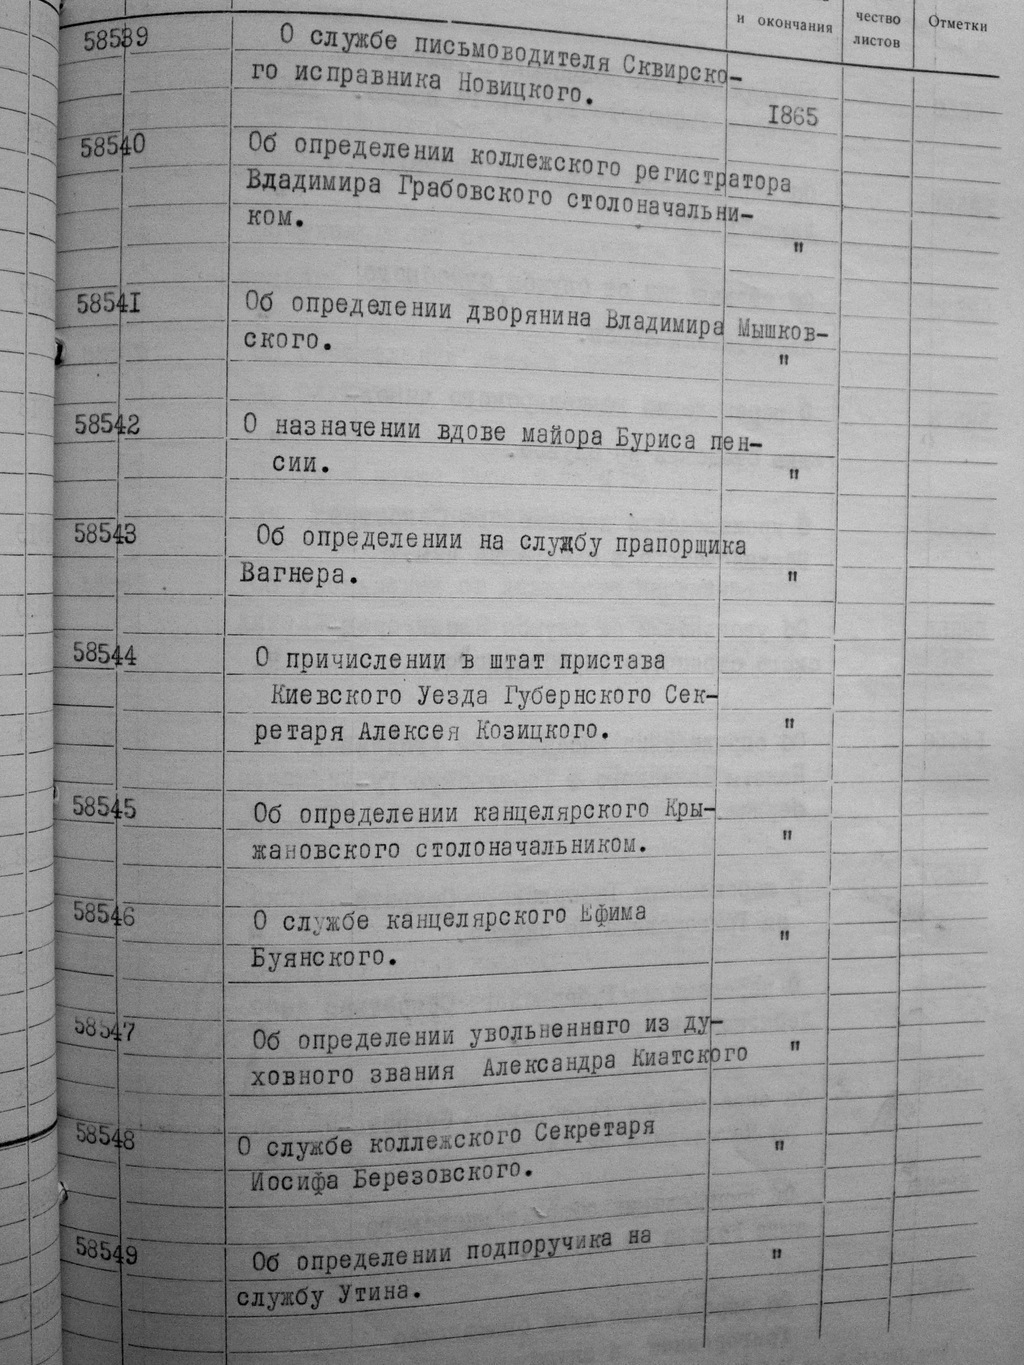 и окончания
чество
листов
Отметки
58539 О службе письмоводителя Сквирско-
го исправника Новицкого.
1865
58540 Об определении коллежского регистратора
Владимира Грабовского столоначальни-
ком.
"
58541 Об определении дворянина Владимира Мышков-
ского.
"
58542 О назначении вдове майора Буриса пен-
сии.
"
58543 Об определении на службу прапорщика
Вагнера. "
58544 О причислении в штат пристава
Киевского Уезда Губернского Сек-
ретаря Алексея Козицкого. "
58545 Об определении канцелярского Кры-
жановского столоначальником. "
58546 О службе канцелярского Ефима
Буянского. "
58547 Об определении увольненного из ду-
ховного звания Александра Киатского "
58548 О службе коллежского Секретаря
Иосифа Березовского. "
58549 Об определении подпоручика на
службу Утина. "